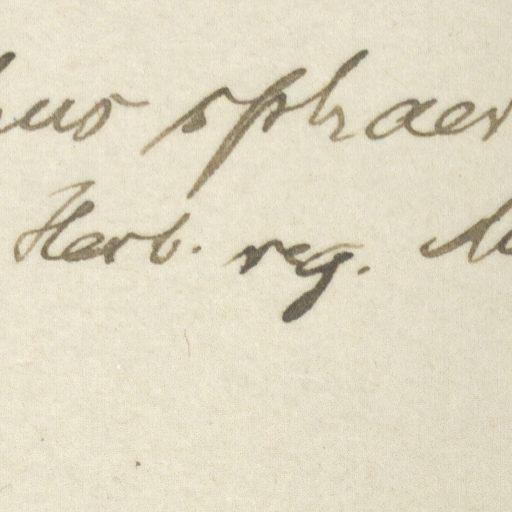 hus sphaer
Herb. reg. M